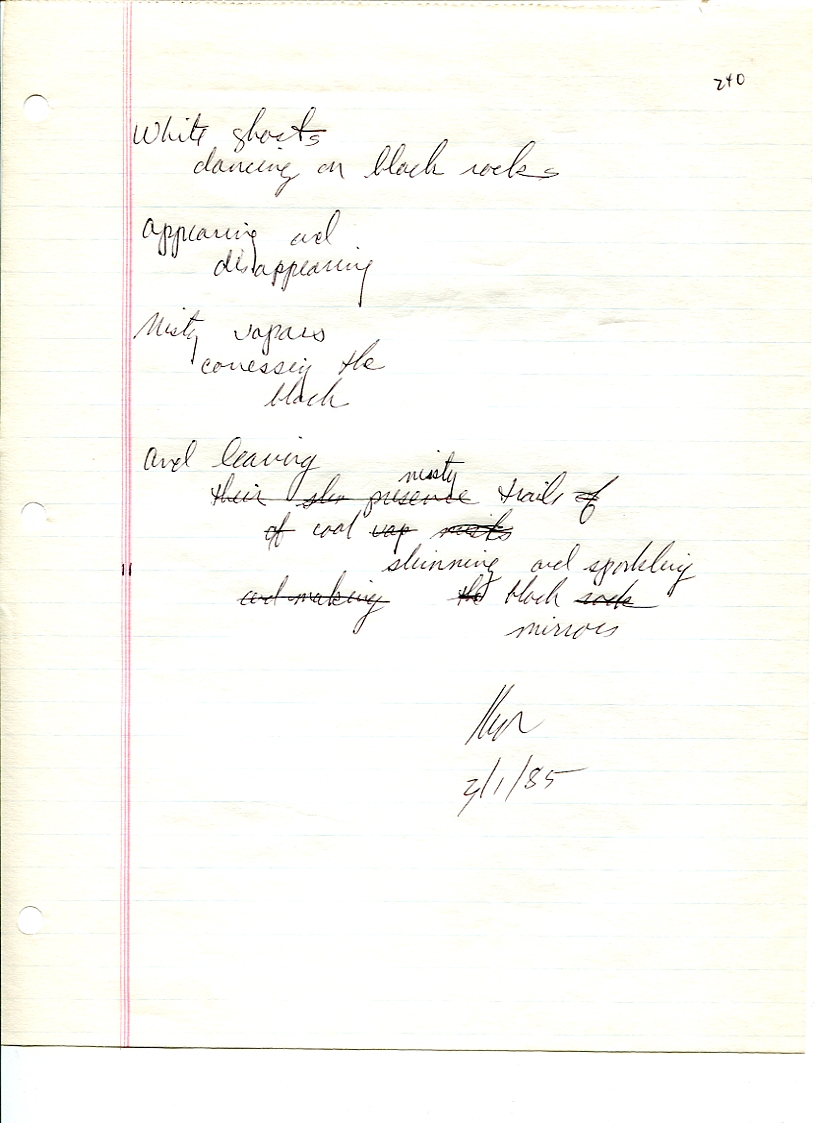 240
White ghosts
dancing on black rocks
appearing and
disappearing
Misty vapors
caressing the
black
and leaving
misty
their slow presence trails of
of cool vap mists
shinning and sparkling
and making the black rock
mirrors
2/1/85